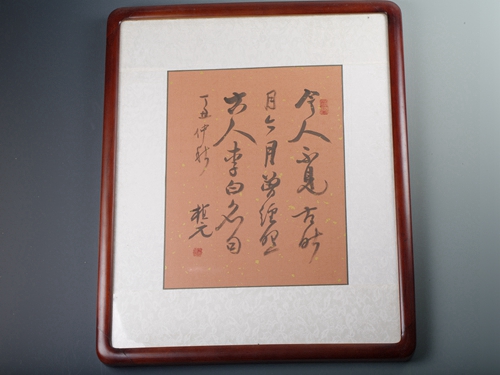 今人不见古时
月今月曾经照
古人李白名句
丁丑仲秋
植元